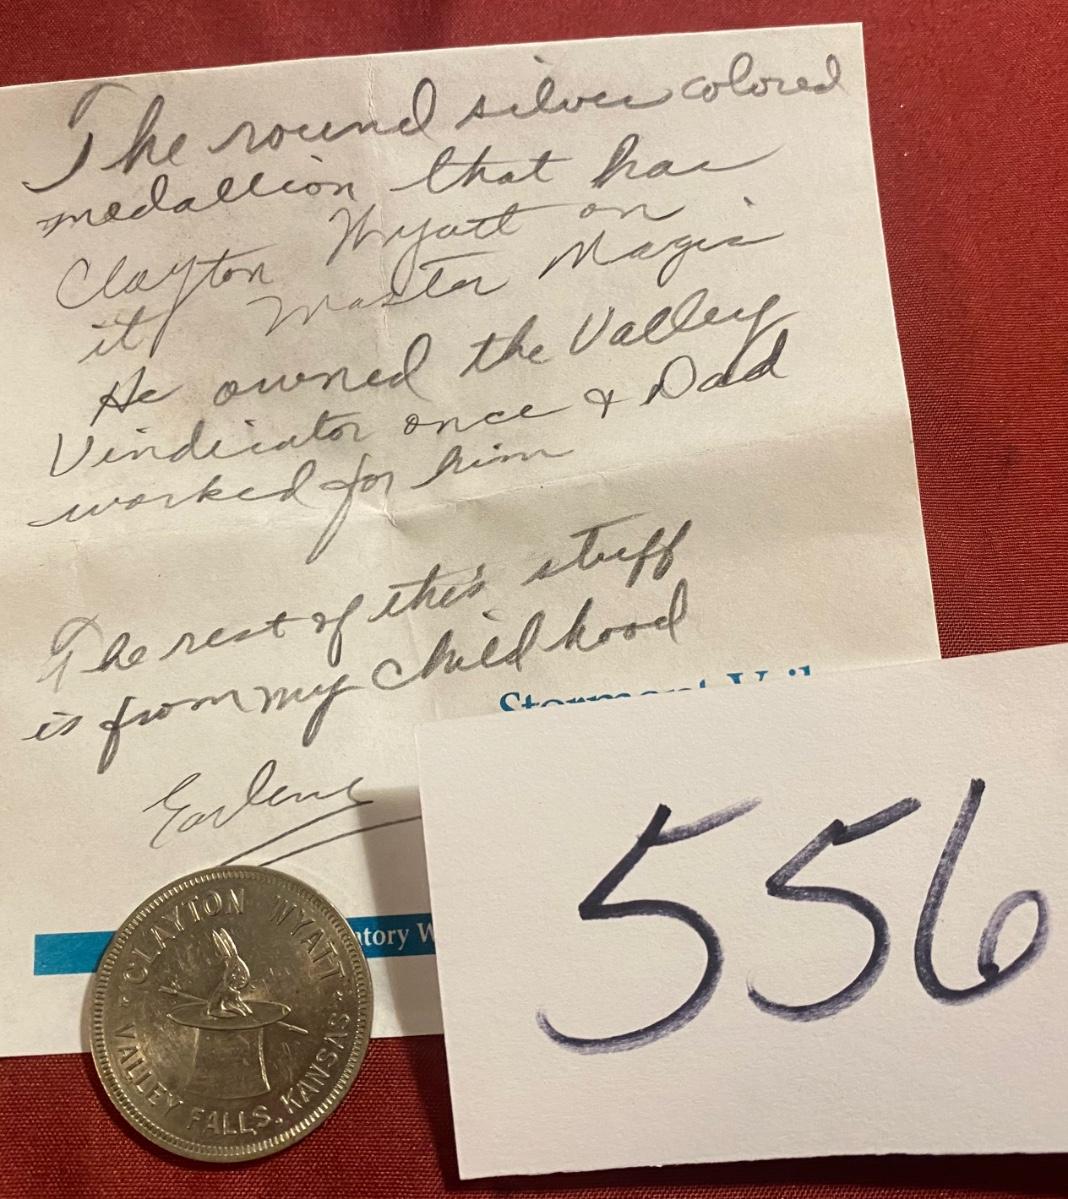 The round silver colored
medallion that has
Clayton Wyatt on
it Master Magic
He owned the Valley
Vindicator once & Dad
worked for him
The rest of this stuff
is from my childhood
Stormont Vail
Earlene
atory W
CLAYTON WYATT
VALLEY FALLS, KANSAS
556